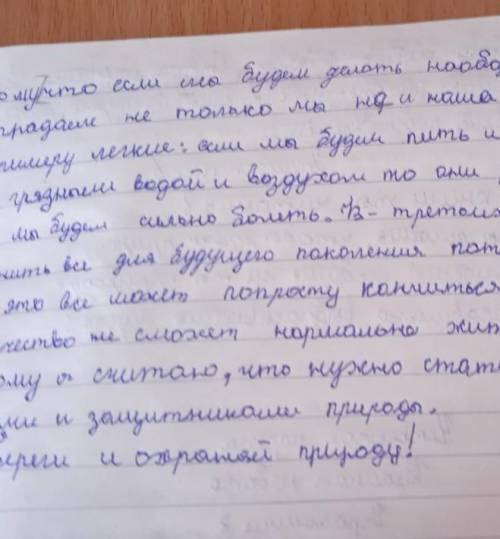 ому что если мы будем делать наобо
традаем не только мы но и наша
римеру легкие: если мы будем пить и
грязными водой и воздухом то они
мы будем сильно болеть. В-третьих
нить все для будущего поколения пот
это все может попросту кончиться
чество не сможет нормально жит
ому я считаю, что нужно стат
ми и защитниками природы.
ереги и охраняй природу!